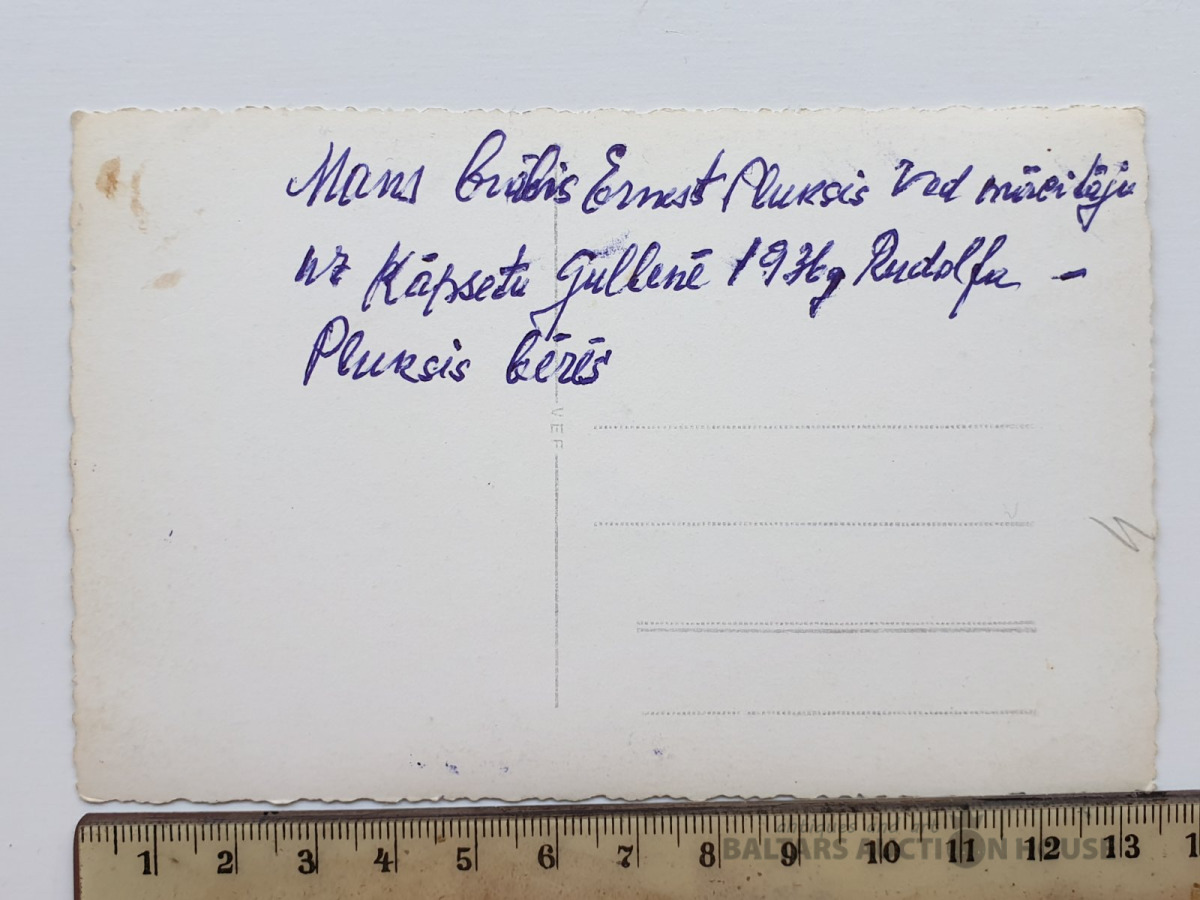 Mans brālis Ernest Pluksis Ved mācitāju
uz Kāpsētu Gulbenē 1936g Rudolfa -
Pluksis bērēs
VEF
1 2 3 4 5 6 7 8 9 10 11 12 13 1
antiques and art
BALTARS AUCTION HOUSE